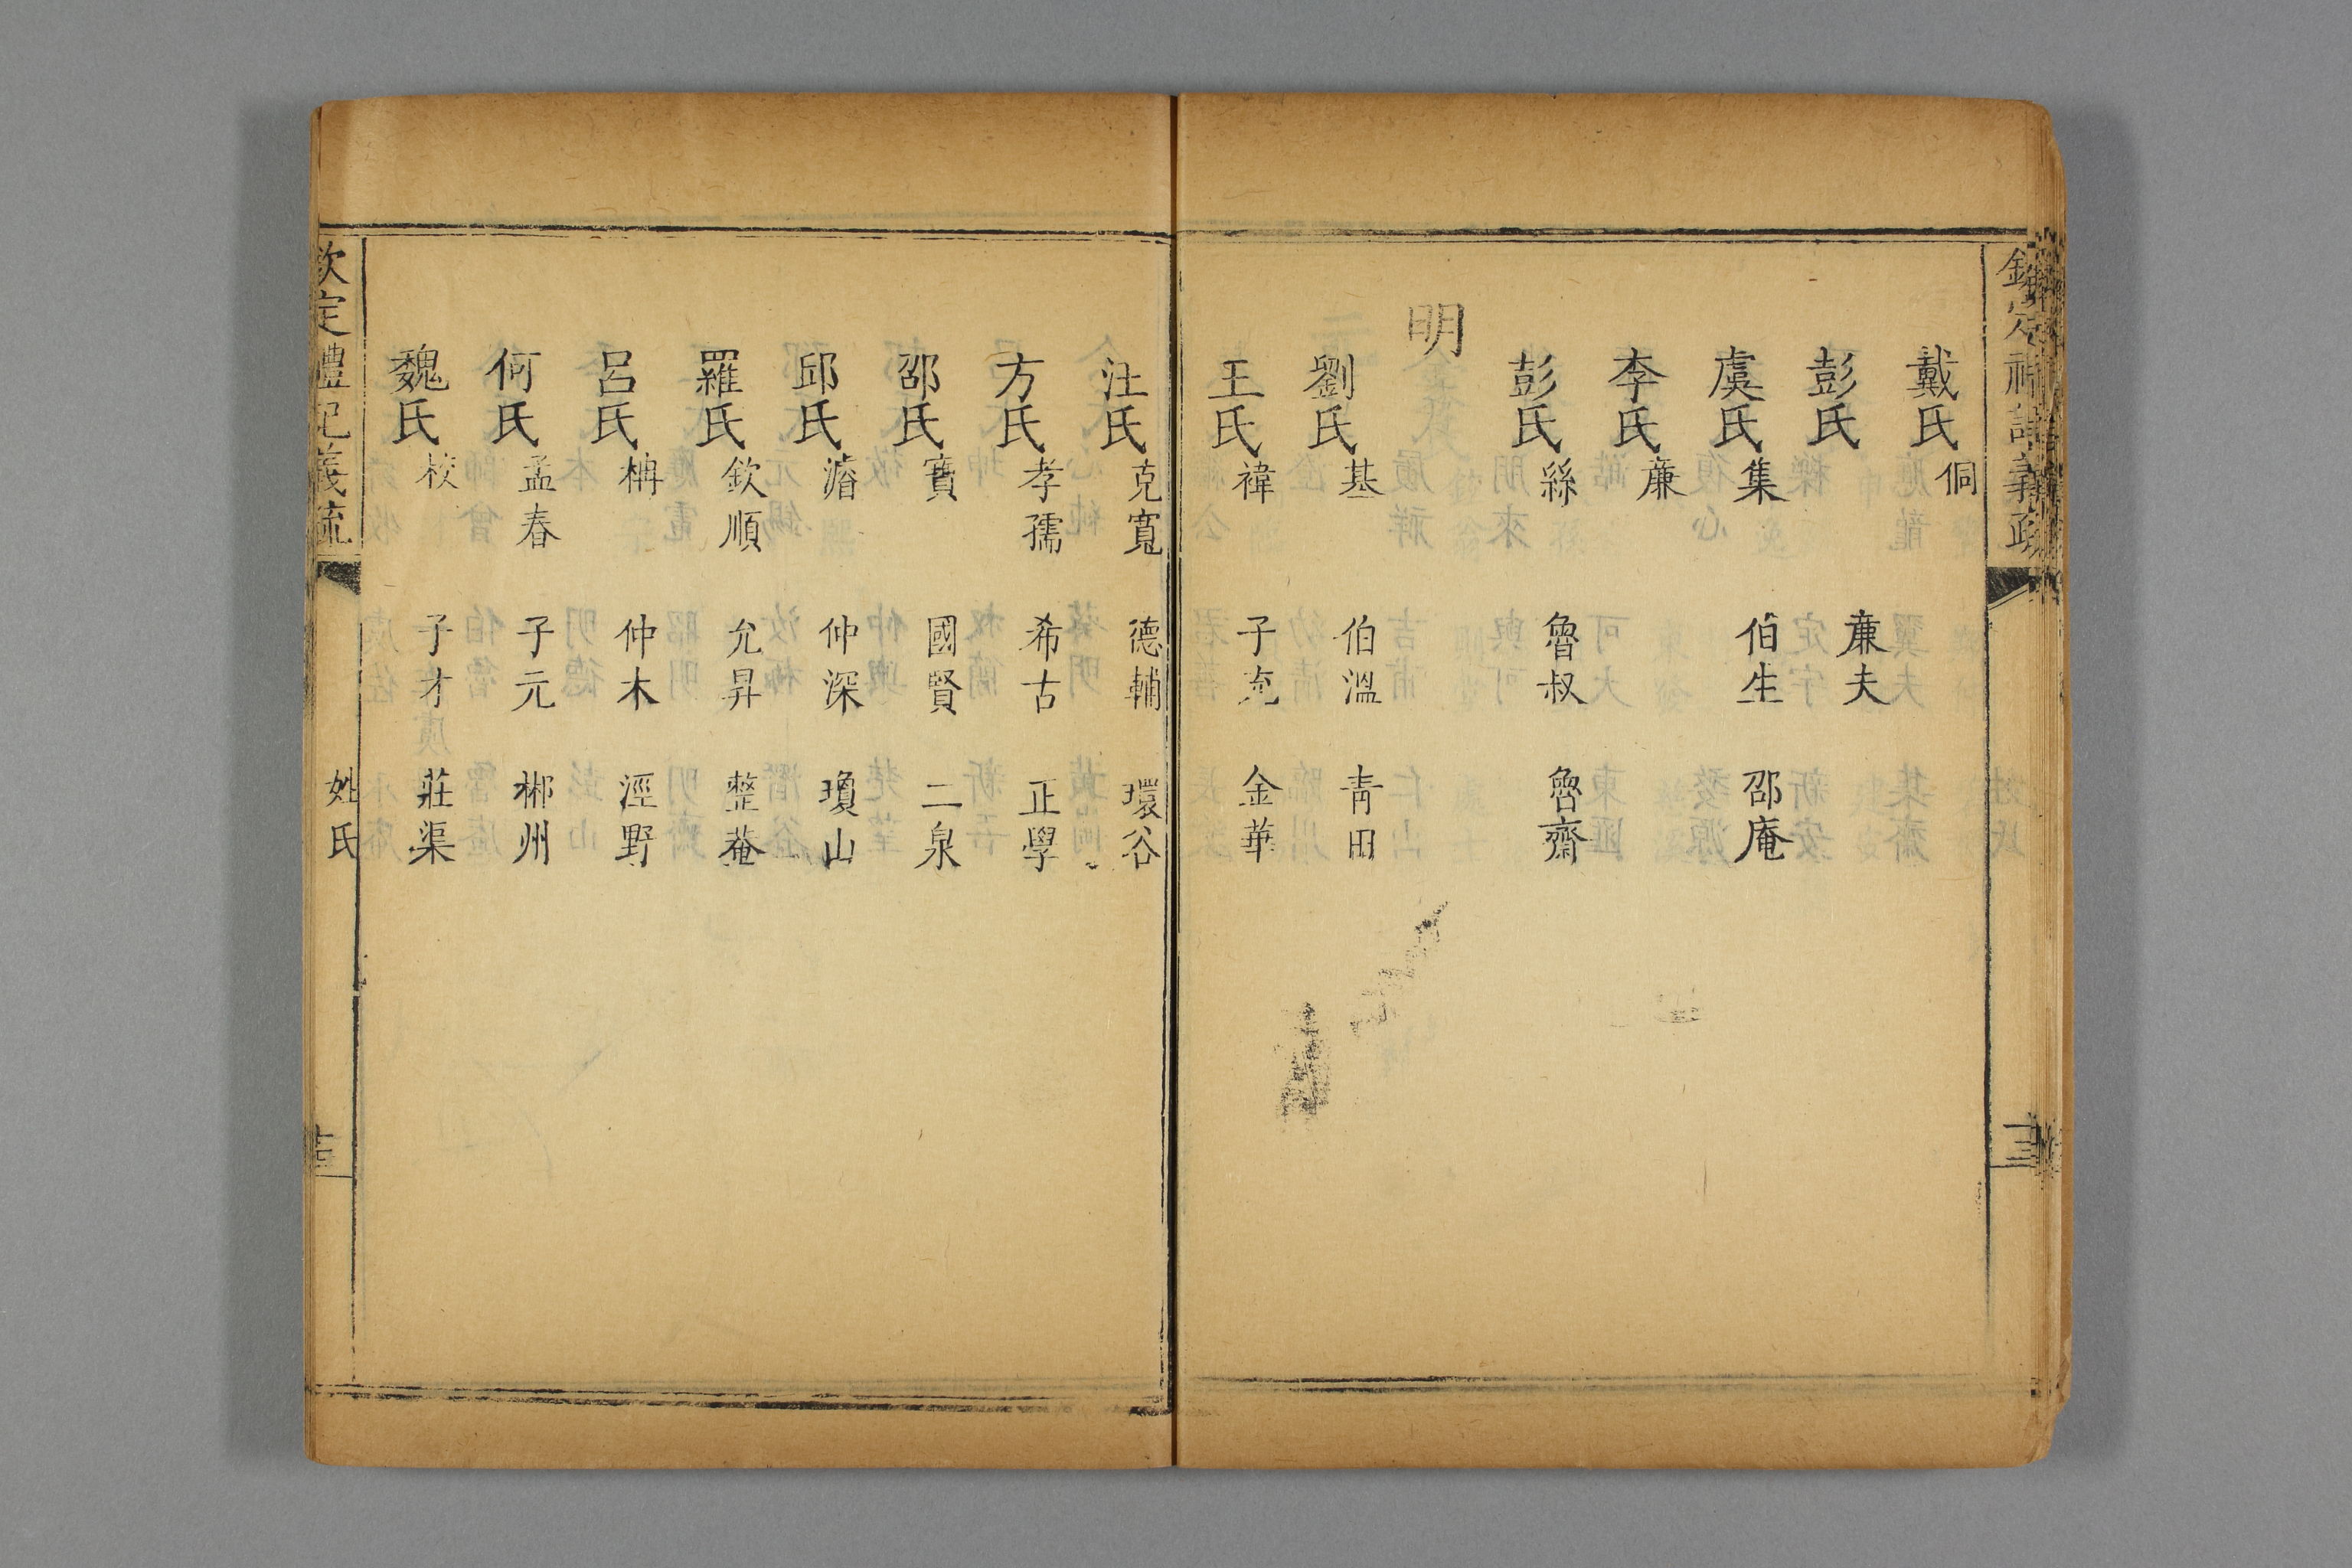 戴氏侗
彭氏 㢘夫
虞氏集 伯生 邵庵
李氏㢘
彭氏絲 魯叔 魯齋
明
劉氏基 伯溫 青田
王氏禕 子充 金華
汪氏克寬 德輔 環谷
方氏孝孺 希古 正學
邵氏寶 國賢 二泉
邱氏濬 仲深 瓊山
羅氏欽順 允昇 整菴
呂氏柟 仲木 涇野
何氏孟春 子元 郴州
魏氏校 子才 莊渠
欽定禮記義疏 姓氏